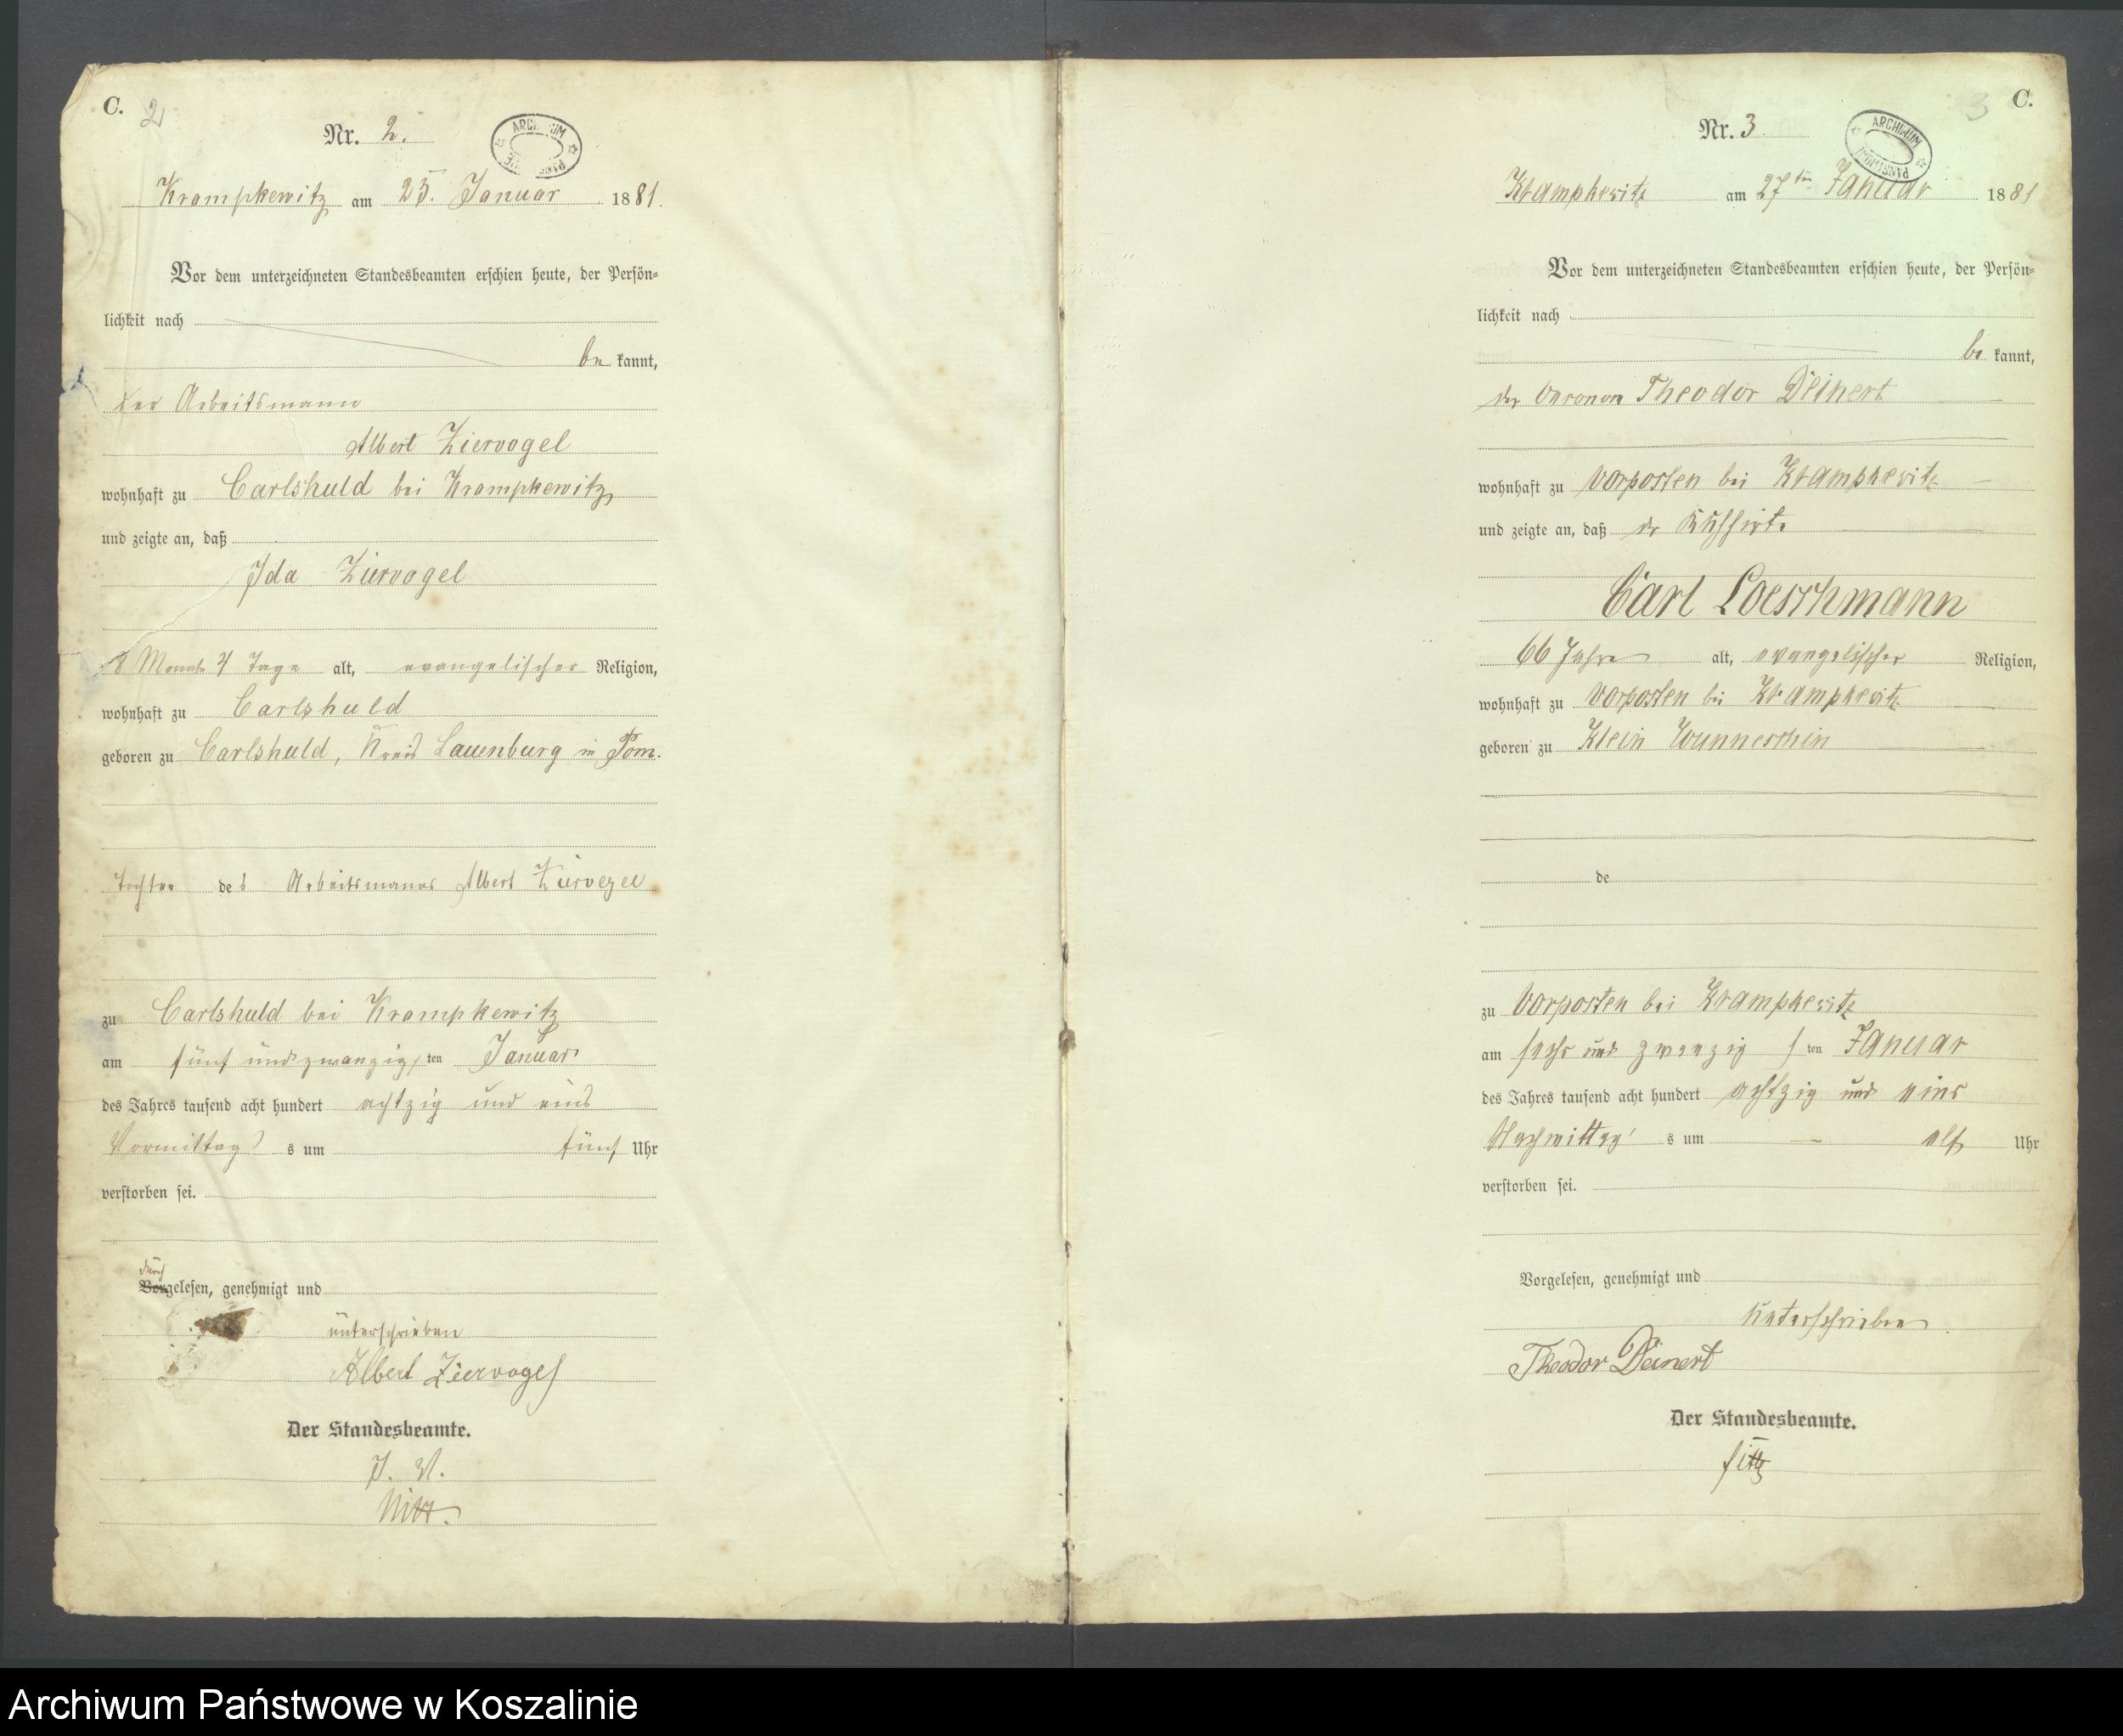 C. 2
Nr. 2.
ARCHIWUM PAŃSTWOWE
Krampkewitz am 25. Januar 1881.
Vor dem unterzeichneten Standesbeamten erschien heute, der Persön=
lichkeit nach
be kannt,
der Arbeitsmann
Albert Ziervogel
wohnhaft zu Carlshuld bei Krampkewitz
und zeigte an, daß
Ida Ziervogel
8 Monate 4 Tage alt, evangelischer Religion,
wohnhaft zu Carlshuld
geboren zu Carlshuld, Kreis Lauenburg in Pom.
Tochter des Arbeitsmanns Albert Ziervogel
zu Carlshuld bei Krampkewitz
am fünf und zwanzigsten Januar
des Jahres tausend acht hundert achtzig und eins
Vormittags um fünf Uhr
verstorben sei.
durch
Vorgelesen, genehmigt und
unterschrieben
Albert Ziervogel
Der Standesbeamte.
J. V.
3 C.
Nr. 3
ARCHIWUM PAŃSTWOWE
Krampkewitz am 27ten Januar 1881
Vor dem unterzeichneten Standesbeamten erschien heute, der Persön=
lichkeit nach
be kannt,
der Theodor Deinert
wohnhaft zu Vorposten bei Krampkewitz
und zeigte an, daß der Kuhhirte
Carl Loeschmann
66 Jahre alt, evangelischer Religion,
wohnhaft zu Vorposten bei Krampkewitz
geboren zu Klein Wunneschin
de
zu Vorposten bei Krampkewitz
am sechs und zwanzig sten Januar
des Jahres tausend acht hundert achtzig und eins
Nachmittags um elf Uhr
verstorben sei.
Vorgelesen, genehmigt und
unterschrieben
Theodor Deinert
Der Standesbeamte.
Archiwum Państwowe w Koszalinie